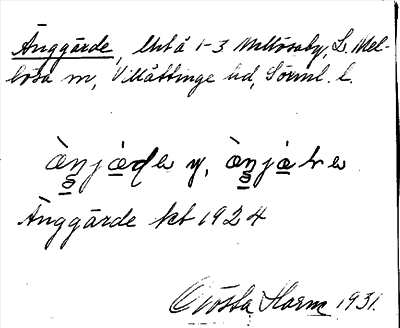 Änggärde, Utå 1-3 Mellösaby, L. Mel-
lösa sn, Villåttinge hd, Sörml. l.
ànjàde y, ànjàre
Änggärde kt 1924
Gösta Harm 1931.